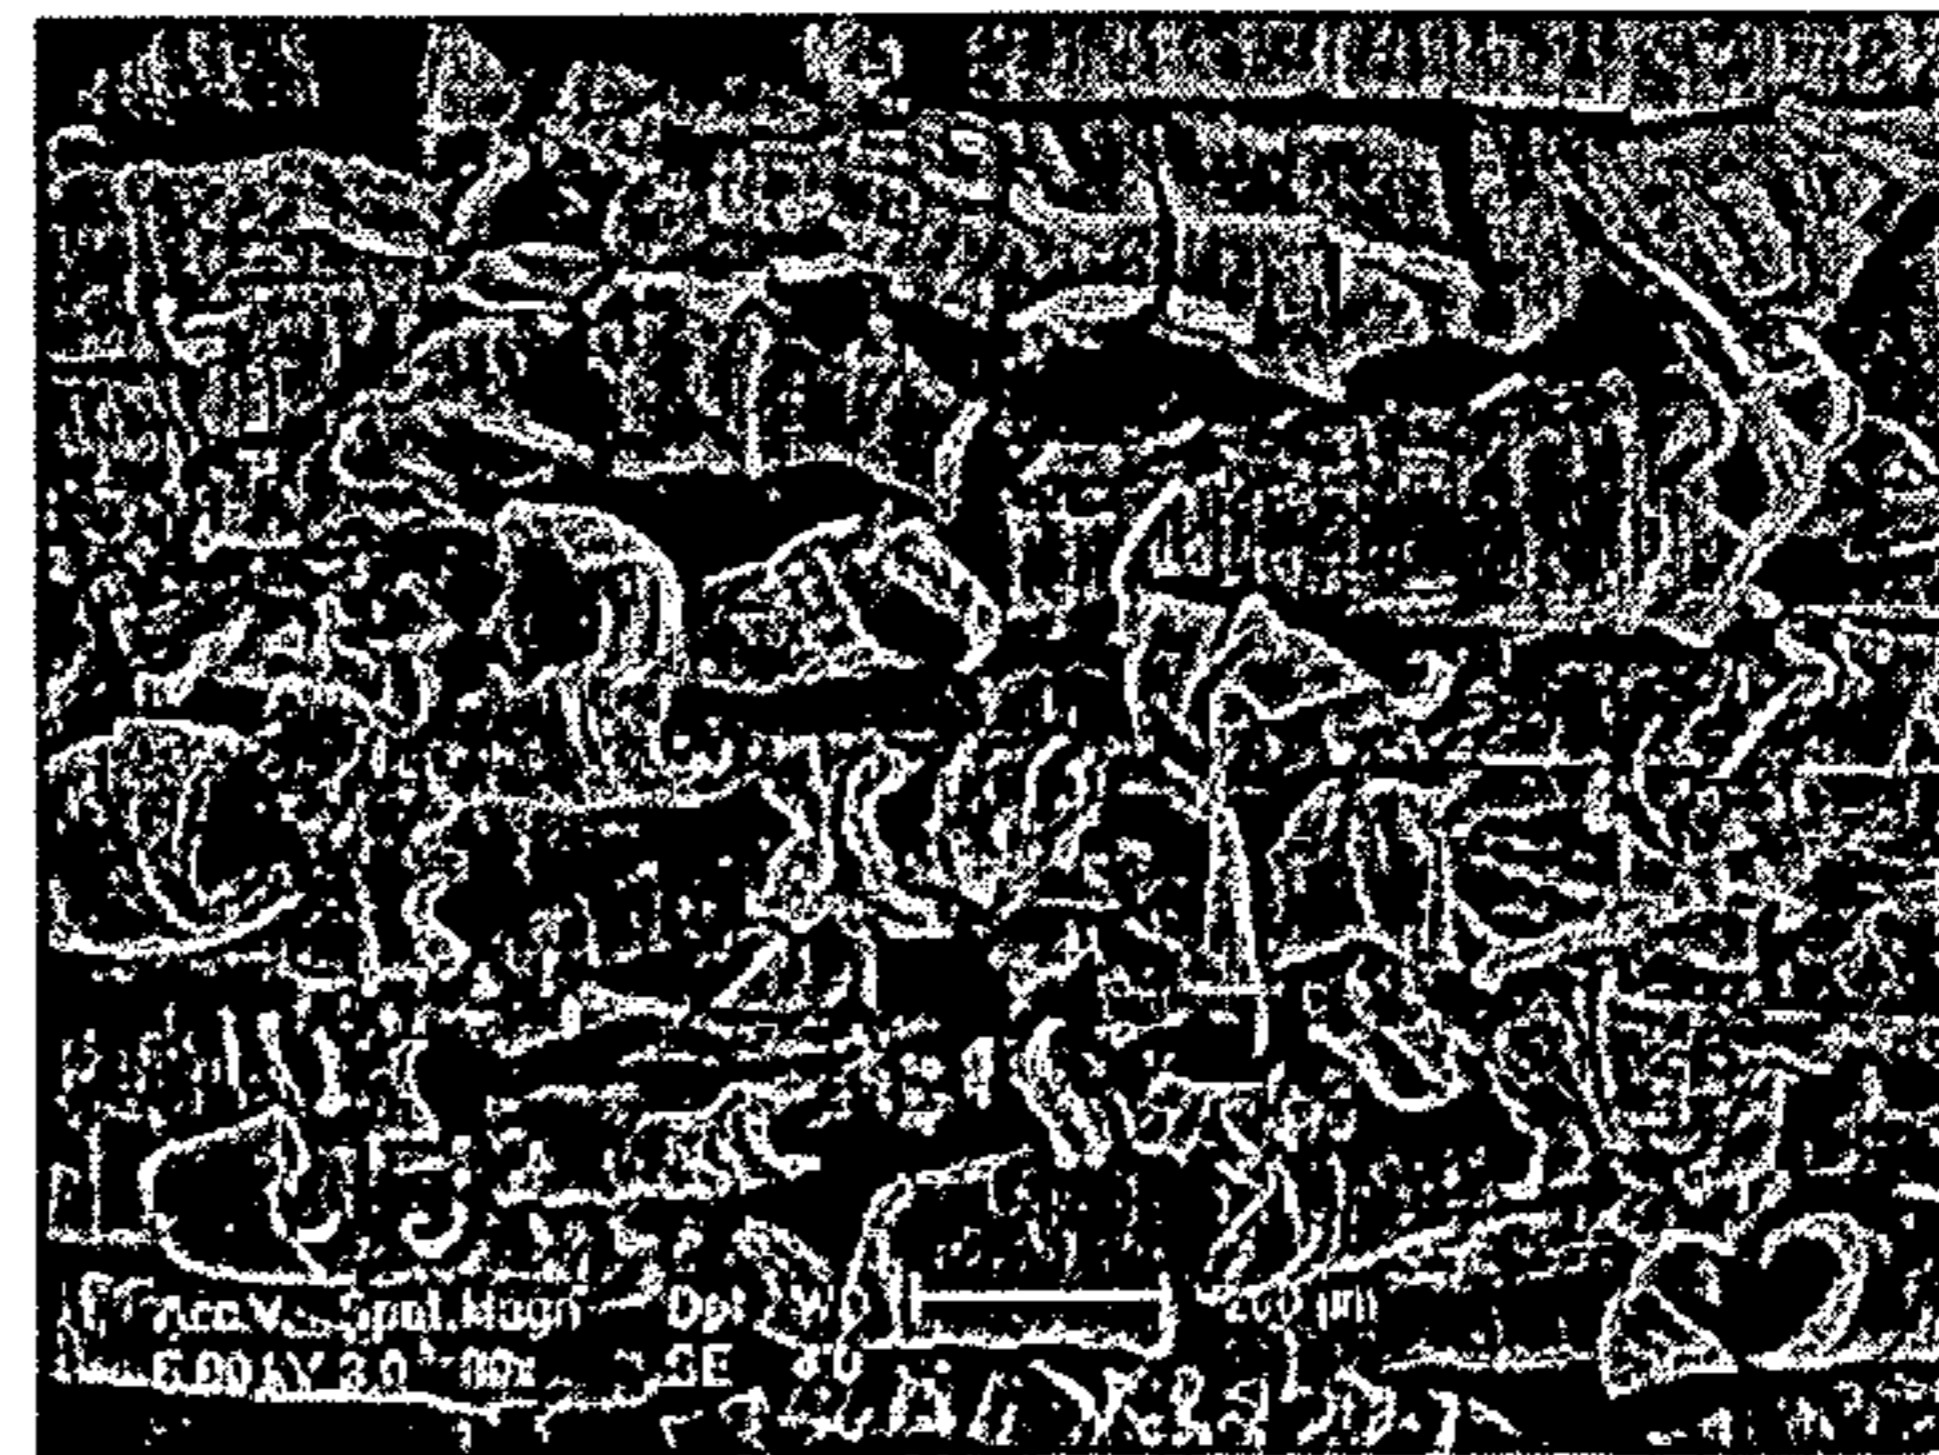 Acc.V Spot Magn Det WD 200 µm
5.00 kV 3.0 SE